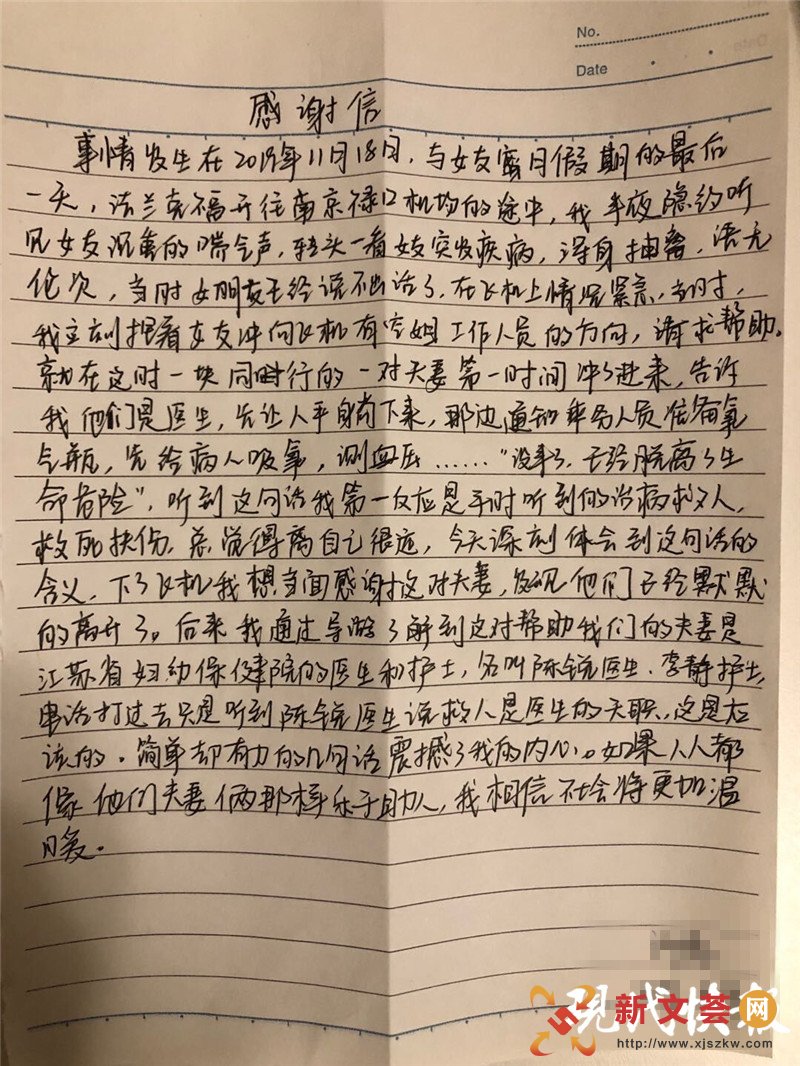 No.
Date
感谢信
事情发生在2019年11月18日,与女友蜜月假期的最后
一天,法兰克福开往南京禄口机场的途中,我半夜隐约听
见女友沉重的喘气声,转头一看女友突发疾病,浑身抽搐,语无
伦次,当时女朋友已经说不出话了,在飞机上情况紧急,当时,
我立刻抱着女友冲向飞机有空姐工作人员的方向,请求帮助。
就在这时一块同时行的一对夫妻第一时间冲了进来,告诉
我他们是医生,先让人平身躺下来,那边通知乘务人员准备氧
气瓶,先给病人吸氧,测血压……“没事了,已经脱离了生
命危险”,听到这句话我第一反应是平时听到的治病救人,
救死扶伤,总觉得离自己很远,今天深刻体会到这句话的
含义,下了飞机我想当面感谢这对夫妻,发现他们已经默默
的离开了。后来我通过导游了解到这对帮助我们的夫妻是
江苏省妇幼保健院的医生和护士,名叫陈锐医生、李静护士,
电话打过去只是听到陈锐医生说救人是医生的天职,这是应
该的。简单却有力的几句话震撼了我的内心。如果人人都
像他们夫妻俩那样乐于助人,我相信社会将更加温
暖。
现代快报
新文荟网
http://www.xjszkw.com